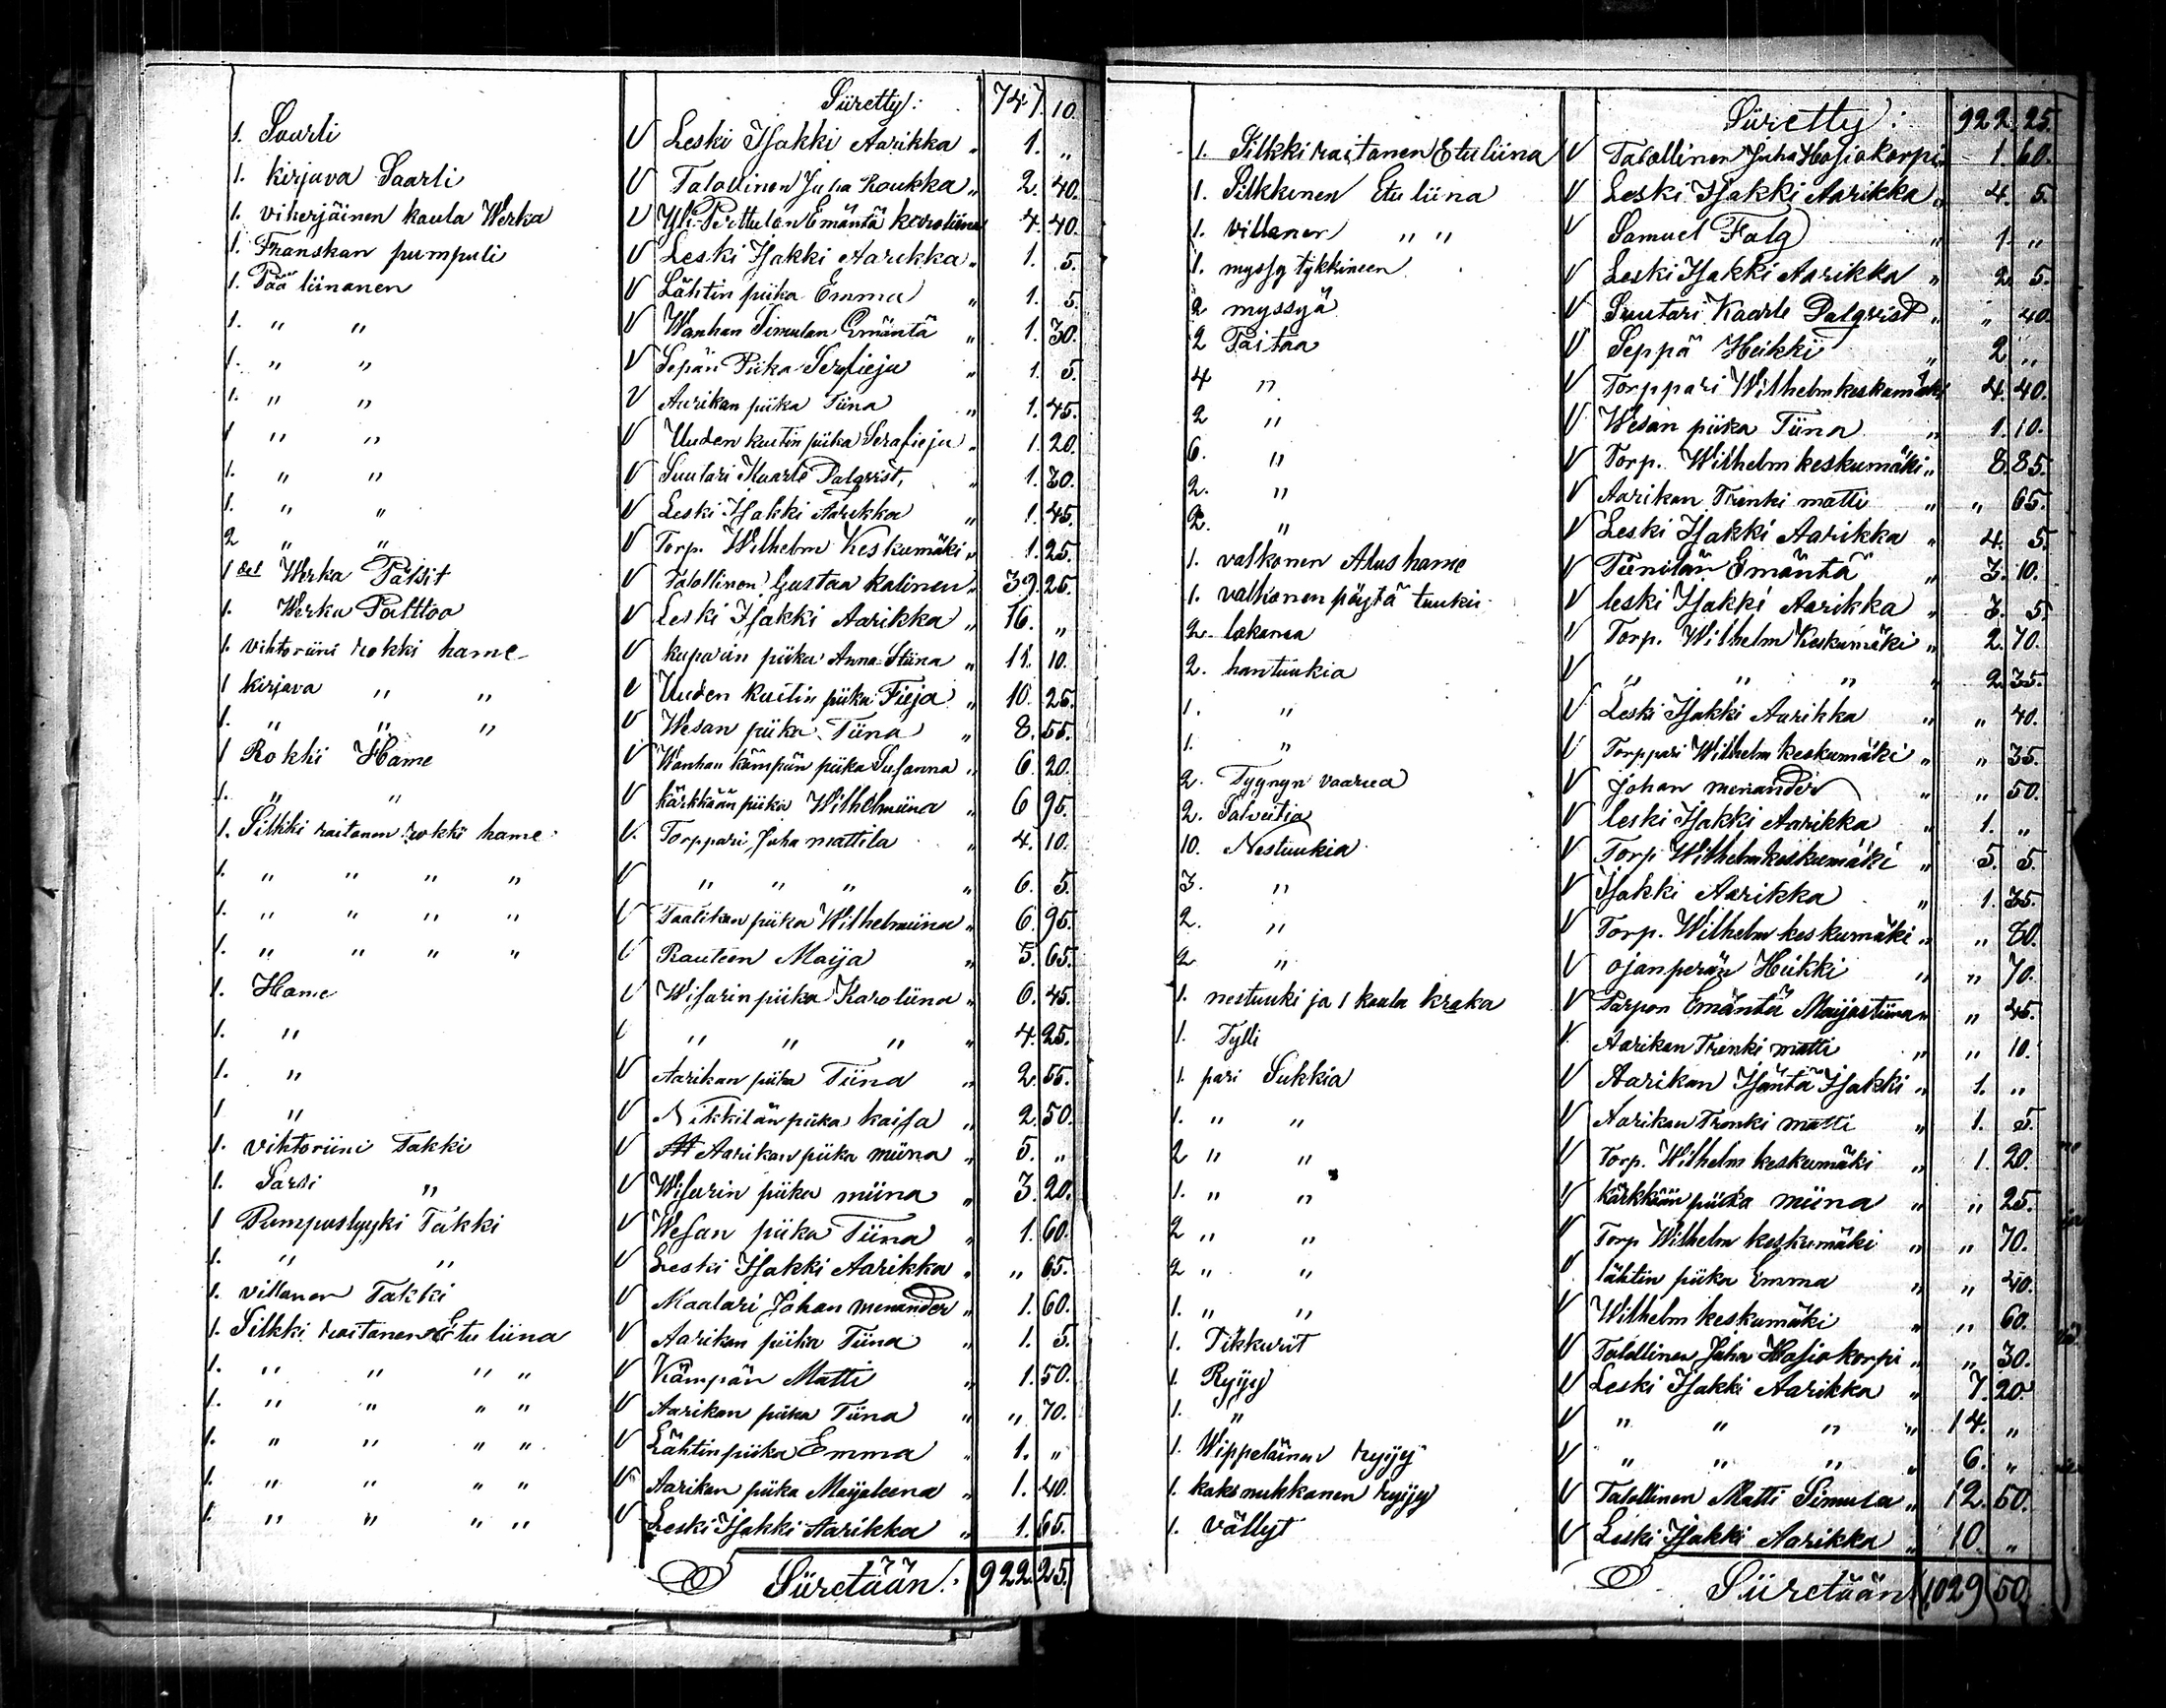 Siiretty: 747. 10.
1. Saarli V Leski Isakki Aarikka „ 1. „
1. kirjava Saarli V Talollinen Juha Raukka „ 2. 40.
1. viherjäinen kaula Werka V Yli-Perttulan Emäntä karoliina 4. 40.
1. Franskan pumpuli V Leski Isakki Aarikka „ 1. 5.
1. Pää liinanen V Lähtin piika Emma „ 1. 5.
1. „ „ V Wanhan Simulan Emäntä „ 1. 30.
1. „ „ V Sepän Piika Serafieja „ 1. 5.
1. „ „ V Aarikan piika Tiina „ 1. 45.
1 „ „ V Uuden kuitin piika Serafieja „ 1. 20.
1. „ „ V Suutari Kaarle Palqvist, „ 1. 30.
1. „ „ V Leski Isakki Aarikka „ 1. 45.
2 „ „ V Torp. Wilhelm Keskumäki „ 1. 25.
1 Werka Paltsit V Talollinen Gustaa kalinen „ 39. 25.
1. Werka Palttoo V Leski Isakki Aarikka „ 16. „
1. vihtoriini rokki hame V kuparin piika Anna-Stiina „ 11. 10.
1 kirjava „ „ V Uuden kuitin piika Fieja „ 10. 25.
1. „ „ „ V Wesan piika Tiina „ 8. 55.
1 Rokki Hame V Wanhan kämpän piika Susanna „ 6. 20.
1. „ „ V kärkkään piika Wilhelmiina „ 6 95.
1. Silkki raitanen rokki hame V. Torppari Juha mattila „ 4. 10.
1. „ „ „ „ V „ „ „ „ 6. 5.
1. „ „ „ „ V Taalikan piika Wilhelmiina „ 6. 95.
1. „ „ „ „ V Rauteen Maija „ 5. 65.
1. Hame V Wisarin piika Karoliina „ 6. 45.
1. „ V „ „ „ „ 4. 25.
1. „ V Aarikan piika Tiina „ 2. 55.
1 „ V Nikkilän piika kaisa „ 2. 50.
1. vihtoriini Takki V Aarikan piika miina „ 5. „
1. Sarsi „ V Wisurin piika miina „ 3. 20.
1 Pumpuslyyki Takki V Wesan piika Tiina „ 1. 60.
1. „ „ V Leski Isakki Aarikka „ „ 65.
1. villanen Takki V Maalari Johan menander „ 1. 60.
1. Silkki raitanen Etu liina V Aarikan piika Tiina „ 1. 5.
1. „ „ „ „ V Kämpän Matti „ 1. 50.
1. „ „ „ „ V Aarikan piika Tiina „ „ 70.
1. „ „ „ „ V Lähtin piika Emma „ 1. „
1. „ „ „ „ V Aarikan piika Maijaleena „ 1. 40.
1. „ „ „ „ V Leski Isakki Aarikka „ 1. 65.
Siiretään: 922. 25.
Siiretty: 922. 25.
1. Silkki raitanen Etu liina V Talollinen Juha Hosiokorpi „ 1. 60.
1. Silkkinen Etu liina V Leski Isakki Aarikka „ 4. 5.
1. villanen „ „ V Samuel Falg „ 1. „
1. myssy tykkineen V Leski Isakki Aarikka „ 2. 5.
2 myssyä V Suutari Kaarle Palqvist „ „ 40.
2 Paitaa V Seppä Heikki „ 2 „
4 „ V Torppari Wilhelm keskumäki 4. 40.
2 „ V Wesan piika Tiina „ 1. 10.
6. „ V Torp. Wilhelm keskumäki „ 8. 85.
2. „ V Aarikan Trenki matti „ „ 65.
2. „ V Leski Isakki Aarikka „ 4. 5.
1. valkonen Alus hame V Tiinilän Emäntä „ 3. 10.
1. valkonen pöytä tuukii V leski Isakki Aarikka „ 3. 5.
2. lakanaa V Torp. Wilhelm Keskumäki „ 2. 70.
2. hantuukia V „ „ „ „ 2. 35.
1. „ V Leski Isakki Aarikka „ „ 40.
1. „ V Torppari Wilhelm keskumäki „ „ 35.
2. Tyynyn vaarua V Johan menander „ „ 50.
2. Salveitia V leski Isakki Aarikka „ 1. „
10. Nestuukia V Torp Wilhelm keskumäki „ 5. 5.
3. „ V Isakki Aarikka „ 1. 35.
2. „ V Torp. Wilhelm keskumäki „ „ 80.
2 „ V ojanperän Heikki „ „ 70.
1. nestuuki ja 1 kaula kraka V Parpon Emäntä Maijastiina „ „ 45.
1. Tylli V Aarikan Trenki matti „ „ 10.
1. pari Sukkia V Aarikan Isäntä Isakki „ 1. „
1. „ „ V Aarikan Trenki matti „ 1. 5.
2 „ „ V Torp. Wilhelm keskumäki „ 1. 20.
1. „ „ V kärkkään piika miina „ „ 25.
2 „ „ V Torp Wilhelm keskumäki „ „ 70.
2 „ „ V lähtin piika Emma „ „ 40.
1. „ „ V Wilhelm keskumäki „ „ 60.
1. Tikkurit V Talollinen Juha Hosiokorpi „ „ 30.
1. Ryijy V Leski Isakki Aarikka „ 7. 20.
1. „ V „ „ „ „ 14. „
1. Wippeläinen ryijy V „ „ „ „ 6. „
1. kaks nukkanen ryijy V Talollinen Matti Simula „ 12. 50.
1. vällyt V Leski Isakki Aarikka „ 10. „
Siiretään 1029 50.